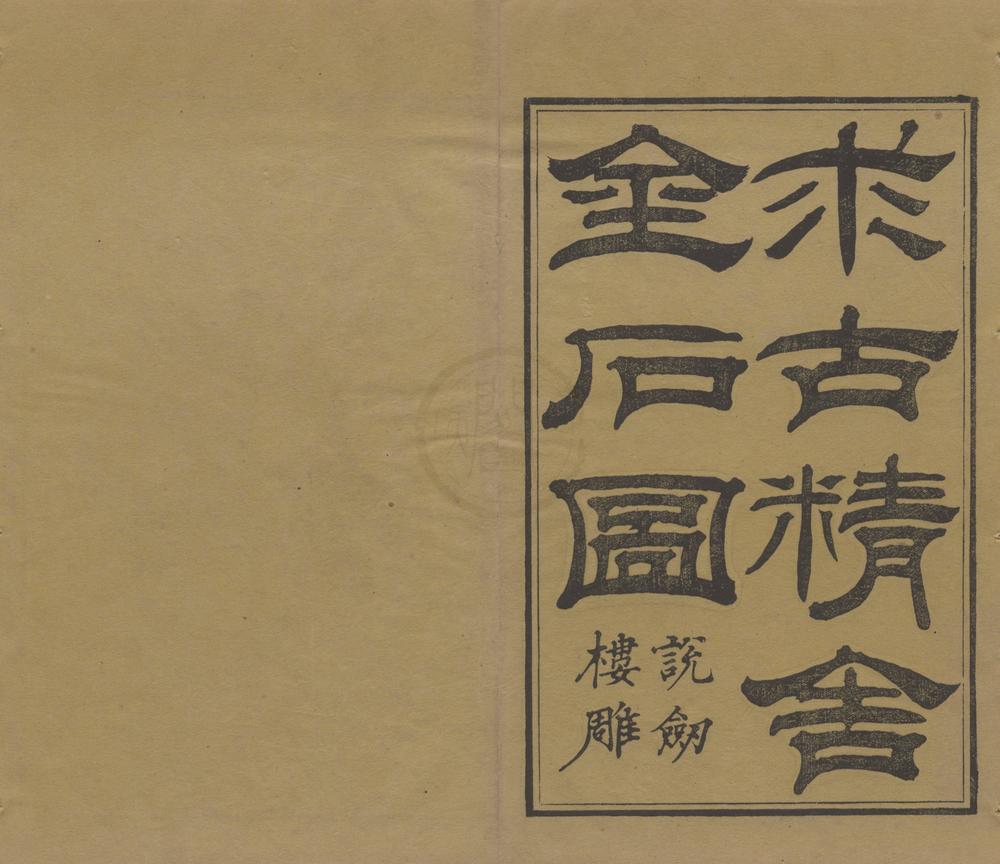 求古精舍
金石圖
說劒
樓雕